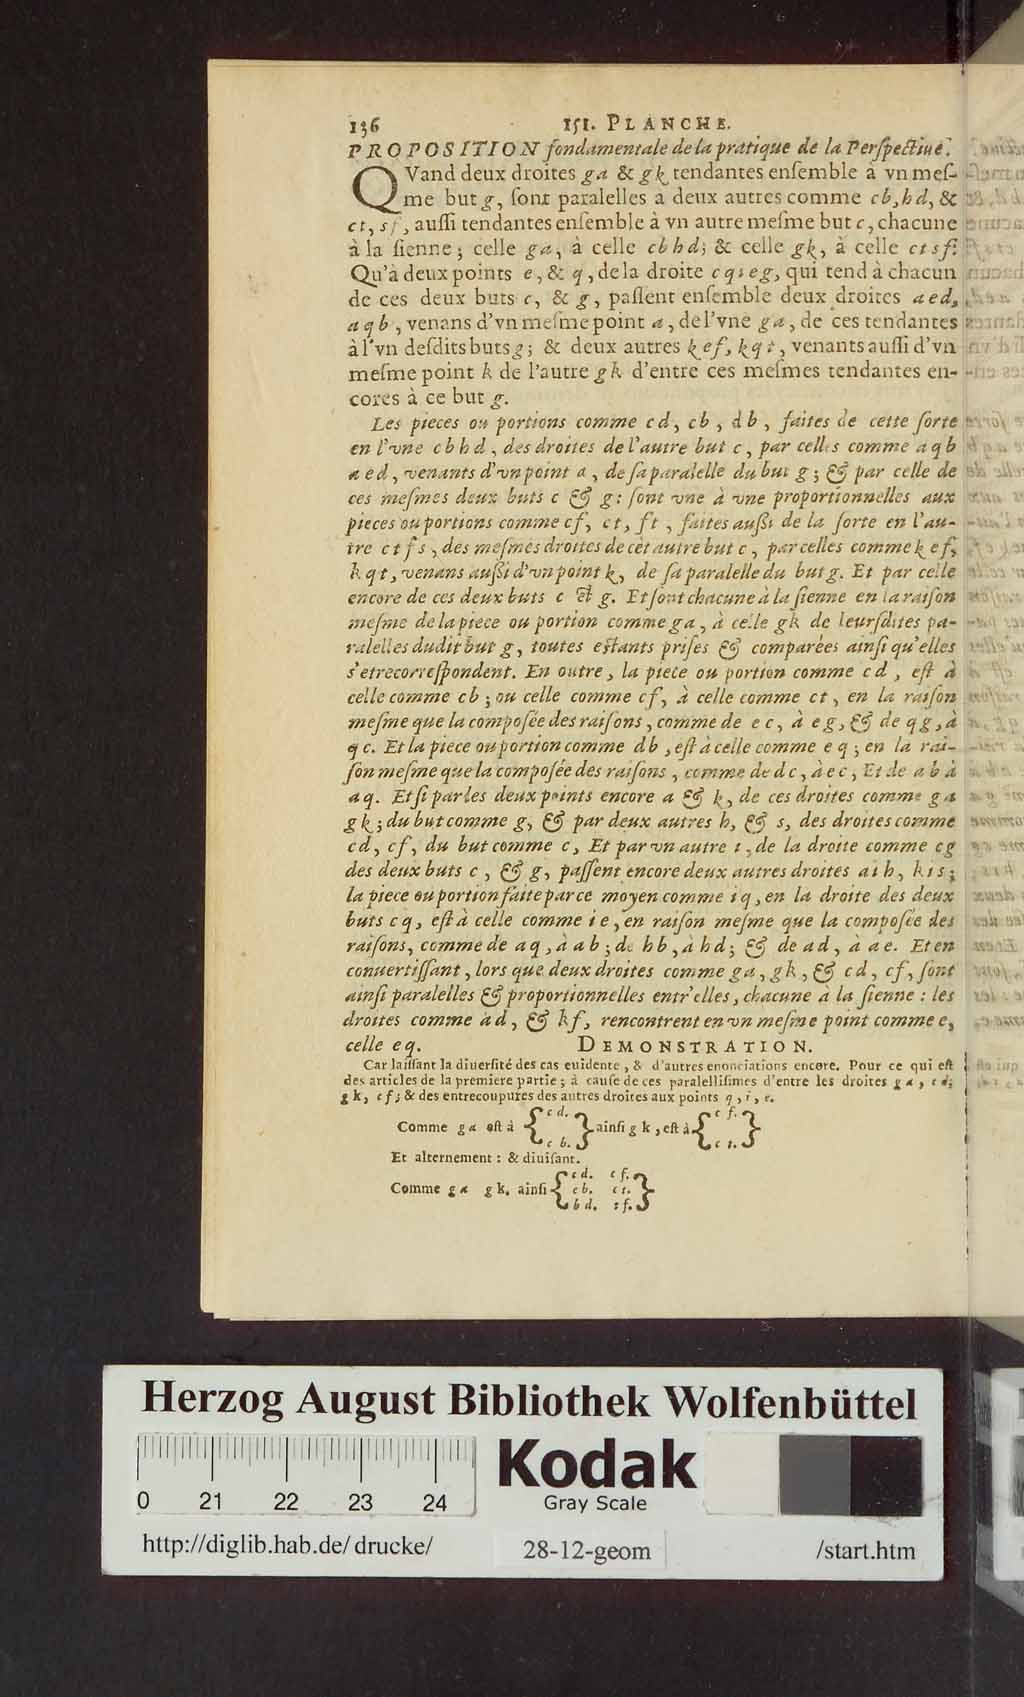 136 151. PLANCHE.
PROPOSITION fondamentale de la pratique de la Perſpectiue.
QVand deux droites ga & gk tendantes enſemble à vn meſ-
me but g, ſont paralelles a deux autres comme cb, hd, &
ct, sf, auſſi tendantes enſemble à vn autre meſme but c, chacune
à la ſienne; celle ga, à celle cbhd; & celle gk, à celle ctsf.
Qu'à deux points e, & q, de la droite cqieg, qui tend à chacun
de ces deux buts c, & g, paſſent enſemble deux droites aed,
aqb, venans d'vn meſme point a, de l'vne ga, de ces tendantes
à l'vn deſdits buts g; & deux autres kef, kqt, venants auſſi d'vn
meſme point k de l'autre gk d'entre ces meſmes tendantes en-
cores à ce but g.
Les pieces ou portions comme cd, cb, db, faites de cette ſorte
en l'vne cbhd, des droites de l'autre but c, par celles comme aqb
aed, venants d'vn point a, de ſa paralelle du but g; & par celle de
ces meſmes deux buts c & g: ſont vne à vne proportionnelles aux
pieces ou portions comme cf, ct, ft, faites auſſi de la ſorte en l'au-
tre ctfs, des meſmes droites de cét autre but c, par celles comme kef,
kqt, venans auſſi d'vn point k, de ſa paralelle du but g. Et par celle
encore de ces deux buts c & g. Et ſont chacune à la ſienne en la raiſon
meſme de la piece ou portion comme ga, à celle gk de leurſdites pa-
ralelles dudit but g, toutes eſtants priſes & comparées ainſi qu'elles
s'etrecorreſpondent. En outre, la piece ou portion comme cd, eſt à
celle comme cb; ou celle comme cf, à celle comme ct, en la raiſon
meſme que la compoſée des raiſons, comme de ec, à eg, & de qg, à
qc. Et la piece ou portion comme db, eſt à celle comme eq; en la rai-
ſon meſme que la compoſée des raiſons, comme de dc, à ec, Et de ab à
aq. Et ſi par les deux points encore a & k, de ces droites comme ga
gk; du but comme g, & par deux autres h, & s, des droites comme
cd, cf, du but comme c, Et par vn autre i, de la droite comme cg
des deux buts c, & g, paſſent encore deux autres droites aih, kis;
la piece ou portion faite par ce moyen comme iq, en la droite des deux
buts cq, eſt à celle comme ie, en raiſon meſme que la compoſée des
raiſons, comme de aq, à ab; de hb, à hd; & de ad, à ae. Et en
conuertiſſant, lors que deux droites comme ga, gk, & cd, cf, ſont
ainſi paralelles & proportionnelles entr'elles, chacune à la ſienne: les
droites comme ad, & kf, rencontrent en vn meſme point comme e,
celle eq. DEMONSTRATION.
Car laiſſant la diuerſité des cas euidente, & d'autres enonciations encore. Pour ce qui eſt
des articles de la premiere partie; à cauſe de ces paralelliſmes d'entre les droites ga, cd;
gk, cf; & des entrecoupures des autres droites aux points q, i, e.
cd. cf.
Comme ga eſt à { } ainſi gk, eſt à { }
cb. ct.
Et alternement: & diuiſant.
cd. cf.
Comme ga gk. ainſi { cb. ct. }
bd. tf.
Herzog August Bibliothek Wolfenbüttel
0 21 22 23 24
Kodak
Gray Scale
http://diglib.hab.de/drucke/ 28-12-geom /start.htm